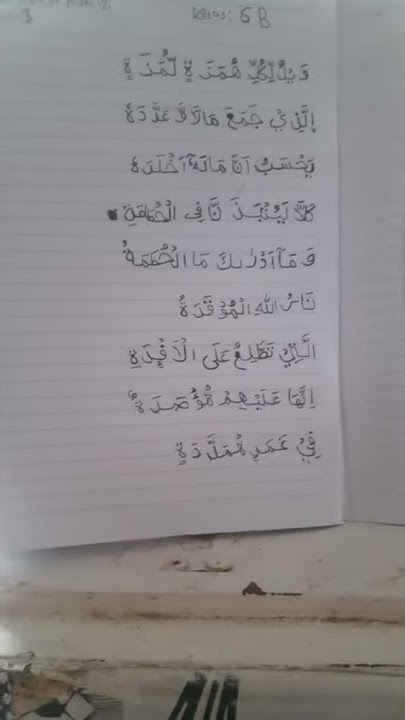 Kelas: 6B
3
وَيْلٌ لِّكُلِّ هُمَزَةٍ لُّمَزَةٍ
اِلَّذِيْ جَمَعَ مَالًا عَدَّدَهٗ
يَحْسَبُ اَنَّ مَالَهٗٓ اَخْلَدَهٗ
كَلَّا لَيُنْبَذَنَّ فِى الْحُطَمَةِ
وَمَآ اَدْرٰىكَ مَا الْحُطَمَةُ
نَارُ اللّٰهِ الْمُوْقَدَةُ
الَّتِيْ تَطَّلِعُ عَلَى الْاَفْـِٕدَةِ
اِنَّهَا عَلَيْهِمْ مُّؤْصَدَةٌ
فِيْ عَمَدٍ مُّمَدَّدَةٍ